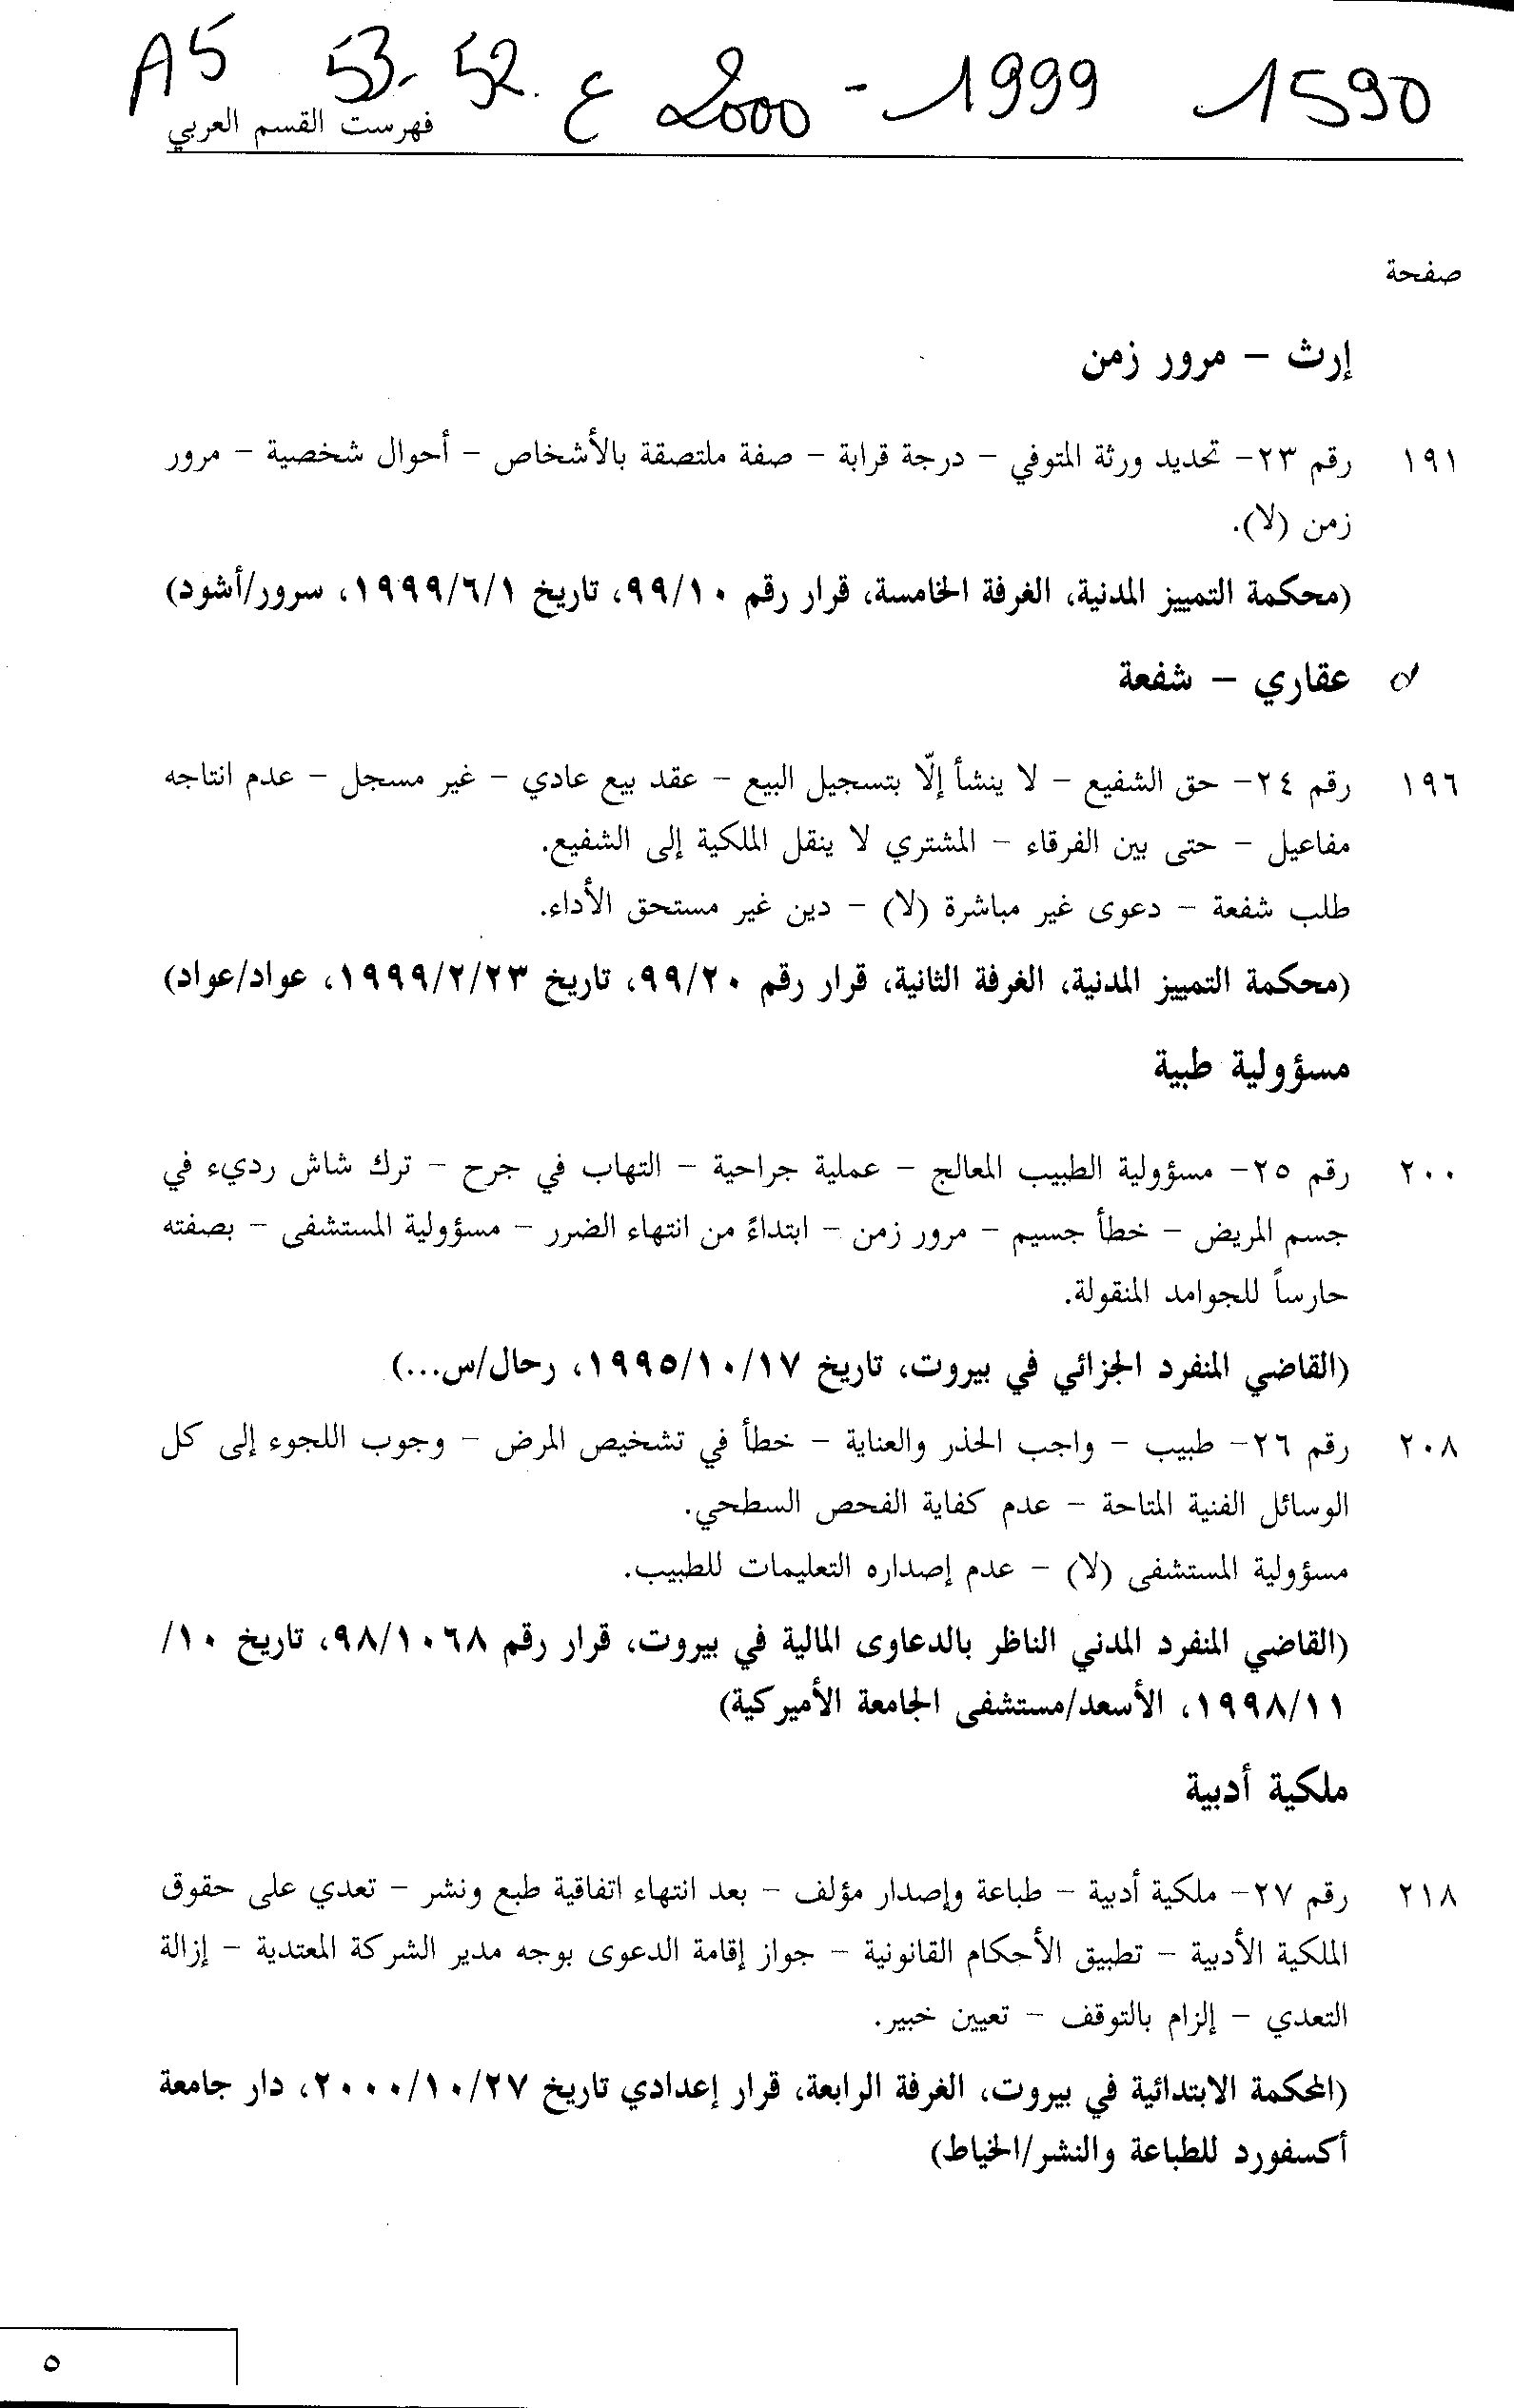 A5 53-52. ع 2000 - 1999 1590
فهرست القسم العربي
صفحة
إرث - مرور زمن
١٩١ رقم ٢٣- تحديد ورثة المتوفي - درجة قرابة - صفة ملتصقة بالأشخاص - أحوال شخصية - مرور
زمن (لا).
(محكمة التمييز المدنية، الغرفة الخامسة، قرار رقم ٩٩/١٠، تاريخ ١٩٩٩/٦/١، سرور/أشود)
عقاري - شفعة
١٩٦ رقم ٢٤- حق الشفيع - لا ينشأ إلّا بتسجيل البيع - عقد بيع عادي - غير مسجل - عدم انتاجه
مفاعيل - حتى بين الفرقاء - المشتري لا ينقل الملكية إلى الشفيع.
طلب شفعة - دعوى غير مباشرة (لا) - دين غير مستحق الأداء.
(محكمة التمييز المدنية، الغرفة الثانية، قرار رقم ٩٩/٢٠، تاريخ ١٩٩٩/٢/٢٣، عواد/عواد)
مسؤولية طبية
٢٠٠ رقم ٢٥- مسؤولية الطبيب المعالج - عملية جراحية - التهاب في جرح - ترك شاش رديء في
جسم المريض - خطأ جسيم - مرور زمن - ابتداءً من انتهاء الضرر - مسؤولية المستشفى - بصفته
حارساً للجوامد المنقولة.
(القاضي المنفرد الجزائي في بيروت، تاريخ ١٩٩٥/١٠/١٧، رحال/س...)
٢٠٨ رقم ٢٦- طبيب - واجب الحذر والعناية - خطأ في تشخيص المرض - وجوب اللجوء إلى كل
الوسائل الفنية المتاحة - عدم كفاية الفحص السطحي.
مسؤولية المستشفى (لا) - عدم إصداره التعليمات للطبيب.
(القاضي المنفرد المدني الناظر بالدعاوى المالية في بيروت، قرار رقم ٩٨/١٠٦٨، تاريخ ١٠/
١٩٩٨/١١، الأسعد/مستشفى الجامعة الأميركية)
ملكية أدبية
٢١٨ رقم ٢٧- ملكية أدبية - طباعة وإصدار مؤلف - بعد انتهاء اتفاقية طبع ونشر - تعدي على حقوق
الملكية الأدبية - تطبيق الأحكام القانونية - جواز إقامة الدعوى بوجه مدير الشركة المعتدية - إزالة
التعدي - إلزام بالتوقف - تعيين خبير.
(المحكمة الابتدائية في بيروت، الغرفة الرابعة، قرار إعدادي تاريخ ٢٠٠٠/١٠/٢٧، دار جامعة
أكسفورد للطباعة والنشر/الخياط)
٥